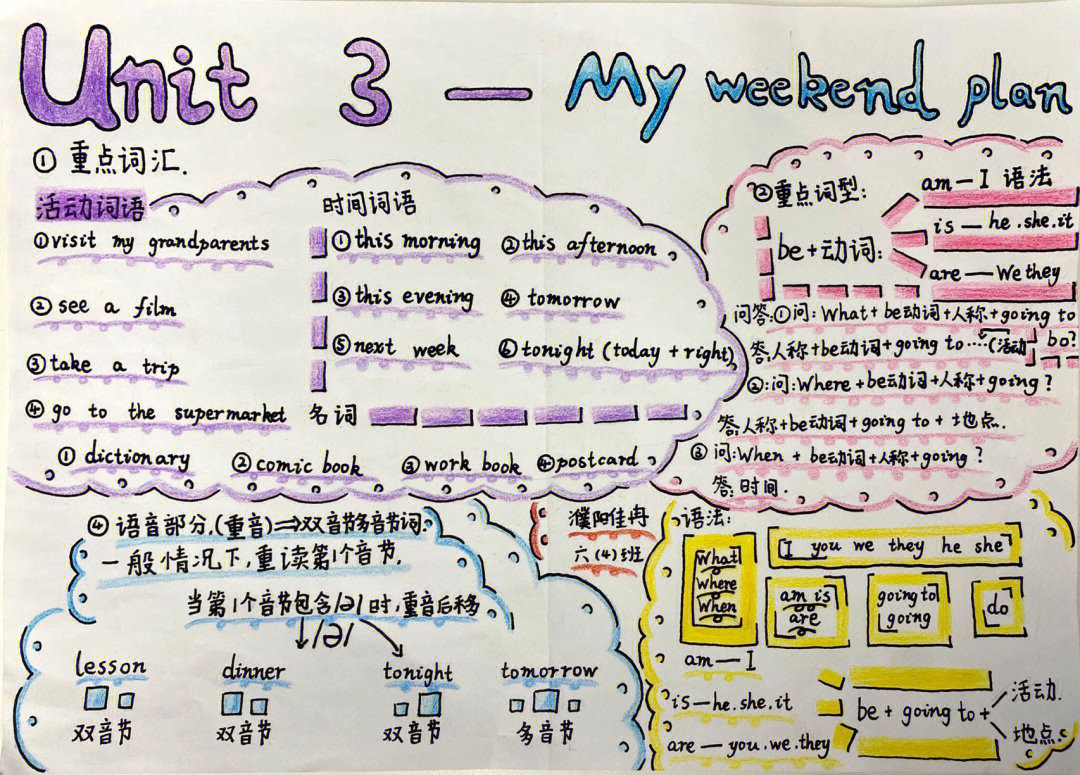 Unit 3 — My weekend plan
①重点词汇.
活动词语
①visit my grandparents
②see a film
③take a trip
④go to the supermarket
时间词语
①this morning ②this afternoon
③this evening ④tomorrow
⑤next week ⑥tonight (today + right)
名词
①dictionary ②comic book ③work book ④postcard
②重点词型:
be+动词:
am—I 语法
is—he.she.it
are—We they
问答:①问: What+be动词+人称+going to do?
答:人称+be动词+going to…(活动
②:问:Where+be动词+人称+going?
答:人称+be动词+going to+地点.
③问:When+be动词+人称+going?
答:时间.
④语音部分.(重音)⇒双音节多音节词.
一般情况下,重读第1个音节.
当第1个音节包含/ə/时,重音后移
/ə/
lesson dinner tonight tomorrow
双音节 双音节 双音节 多音节
濮阳佳冉
六(4)班
语法:
What
Where
When
I you we they he she
am is
are
going to
going
do
am—I
is—he.she.it
are—you.we.they
be+going to+
活动.
地点.